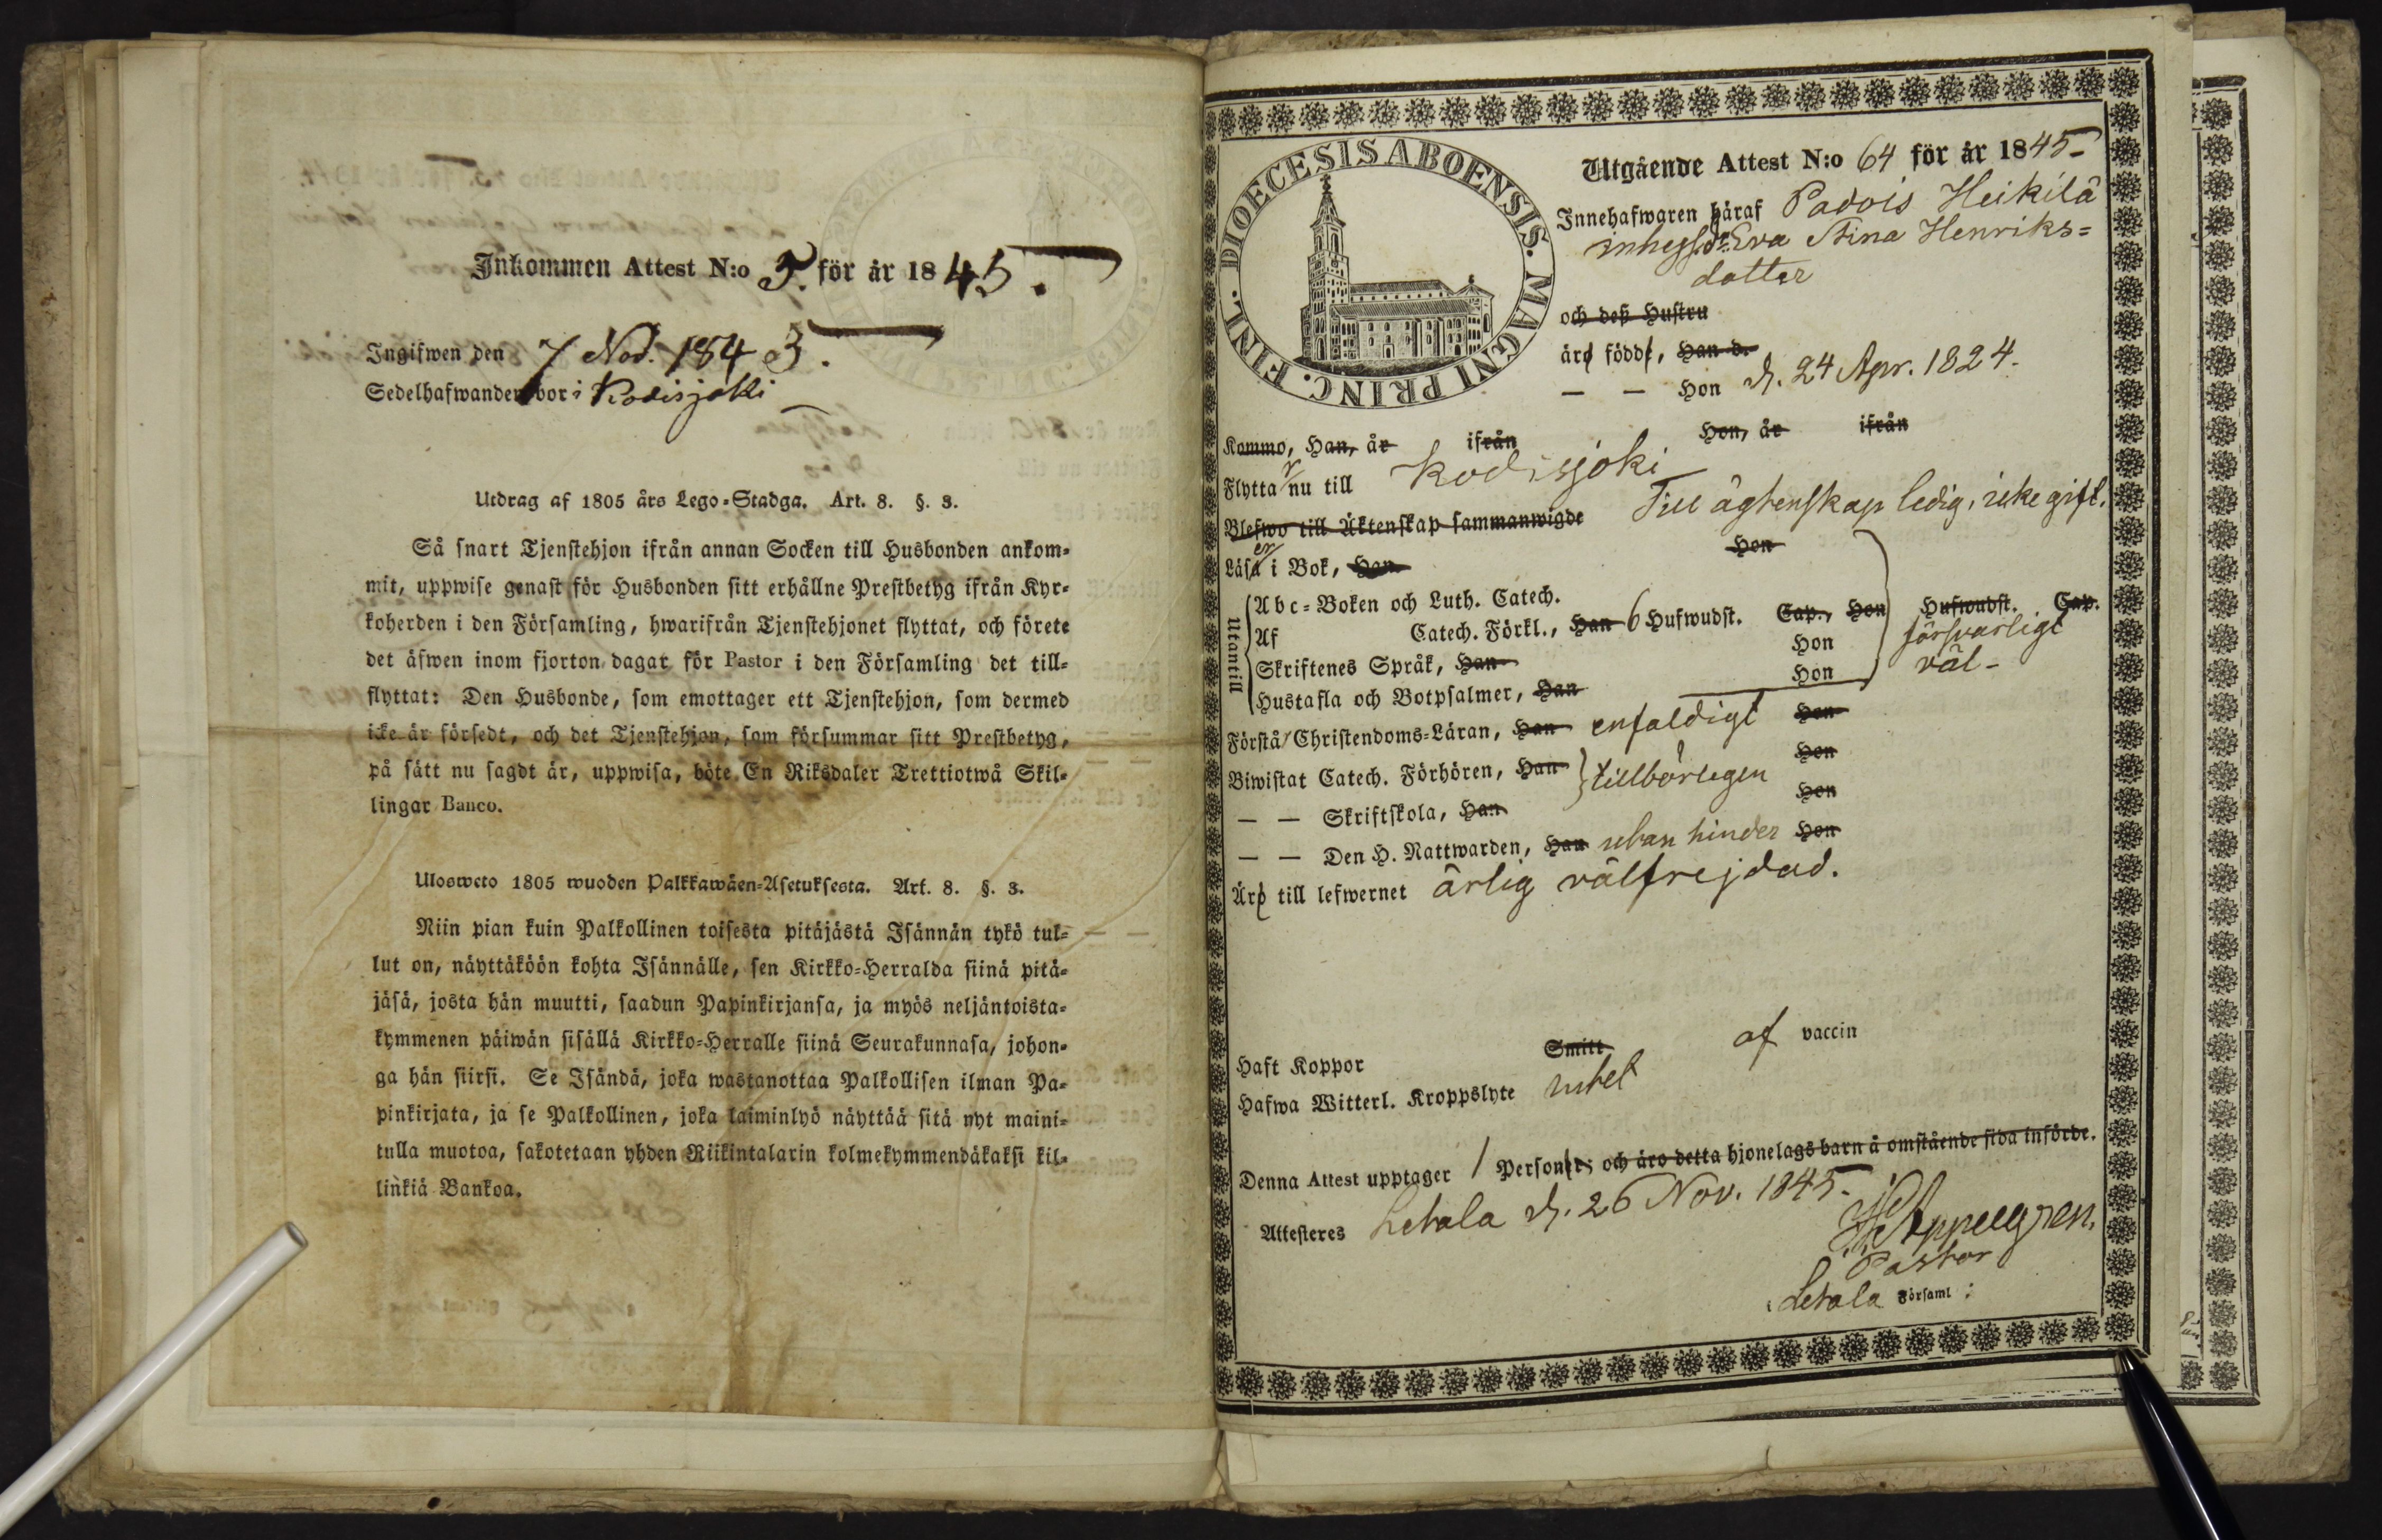 Inkommen Attest N:o 5. för år 1845.
Ingifwen den 7 Nov. 1845.
Sedelhafwanden bor i Kodisjoki
Utdrag af 1805 års Lego-Stadga. Art. 8. §. 3.
Så snart Tjenstehjon ifrån annan Socken till Husbonden ankom-
mit, uppwise genast för Husbonden sitt erhållne Prestbetyg ifrån Kyr-
koherden i den Församling, hwarifrån Tjenstehjonet flyttat, och förete
det äfwen inom fjorton dagar för Pastor i den Församling det till-
flyttat: Den Husbonde, som emottager ett Tjenstehjon, som dermed
icke är försedt, och det Tjenstehjon, som försummar sitt Prestbetyg,
på sätt nu sagdt är, uppwisa, böte En Riksdaler Trettiotwå Skil-
lingar Banco.
Ulosweto 1805 wuoden Palkkawäen-Asetuksesta. Art. 8. §. 3.
Niin pian kuin Palkollinen toisesta pitäjästä Isännän tykö tul-
lut on, näyttäköön kohta Isännälle, sen Kirkko-Herralda siinä pitä-
jäsä, josta hän muutti, saadun Papinkirjansa, ja myös neljäntoista-
kymmenen päiwän sisällä Kirkko-Herralle siinä Seurakunnasa, johon-
ga hän siirsi. Se Isändä, joka wastanottaa Palkollisen ilman Pa-
pinkirjata, ja se Palkollinen, joka laiminlyö näyttää sitä nyt maini-
tulla muotoa, sakotetaan yhden Riikintalarin kolmekymmendäkaksi kil-
linkiä Bankoa.
DIOECESIS ABOENSIS. MAGNI PRINC. FINL.
Utgående Attest N:o 64 för år 1845
Innehafwaren häraf Padois Heikilä
Eva Stina Henriks=
dotter
och deß Hustru
äro född, Han d.
— — Hon d. 24 Apr. 1824.
Kommo, Han, år ifrån Hon, år ifrån
Flyttar nu till Kodisjoki
Blefwo till Äktenskap sammanwigde Till ägtenskap ledig, icke gift.
Läser i Bok, Han Hon
Utantill
Abc-Boken och Luth. Catech.
Af Catech. Förkl., Han 6 Hufwudst. Cap., Hon Hufwudst. Cap.
Skriftenes Språk, Han Hon försvarligt
Hustafla och Botpsalmer, Han Hon väl-
Förstå Christendoms-Läran, Han enfaldigt Hon
Biwistat Catech. Förhören, Han tillbörligen Hon
— — Skriftskola, Han Hon
— — Den H. Nattwarden, Han utan hinder Hon
Är till lefwernet ärlig välfrejdad.
Haft Koppor Smitt af vaccin
Hafwa Witterl. Kroppslyte intet
Denna Attest upptager 1 Personer; och äro detta hjonelags barn å omstående sida införde.
Attesteres Letala d. 26 Nov. 1845.
Appelgren.
Pastor
i Letala Församl: